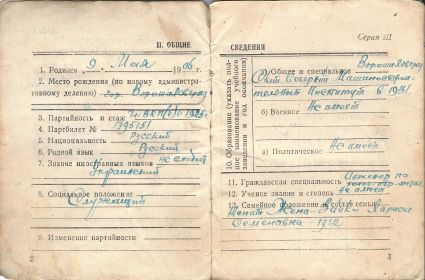 II. ОБЩИЕ
1. Родился „9" Мая 1906 г.
2. Место рождения (по новому административному делению) гор. Ворошиловград
3. Партийность и стаж
4. Партбилет № 1795151
5. Национальность Русский
6. Родной язык Русский
7. Знание иностранных языков не слабый
Украинский
8. Социальное положение
Служащий
9. Изменение партийности
2
СВЕДЕНИЯ
Серия Ш
10. Образование (указать полное наименование учебного заведения и год окончания)
а) Общее и специальное Ворошиловград
Институт в 1931.
б) Военное Не имеет
в) Политическое Не имеет
11. Гражданская специальность Инженер по
12. Ученое звание и степень не имеет
13. Семейное положение и состав семьи
Женат Жена Лариса
Семеновна - 1912
3